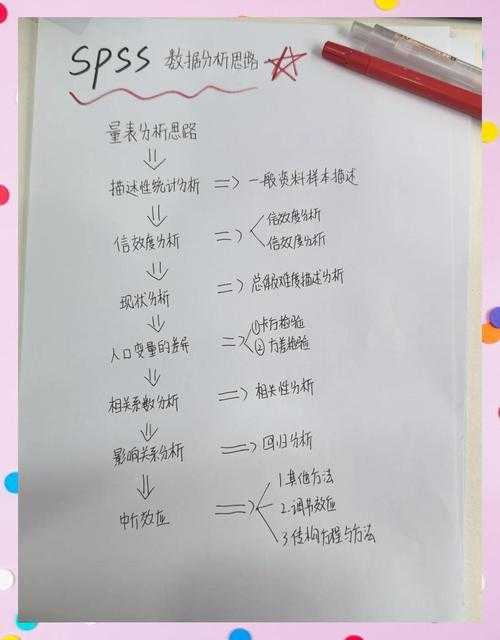 SPSS 数据分析思路
量表分析思路
描述性统计分析 => 一般资料样本描述
信效度分析 => 信效度分析
信效度分析
现状分析 => 总体难度描述分析
人口变量的差异 => ①卡方检验
② 方差检验
相关系数分析 => 相关性分析
影响关系分析 => 回归分析
中介效应 => 1.其他方法
2.调节效应
3.结构方程与方法